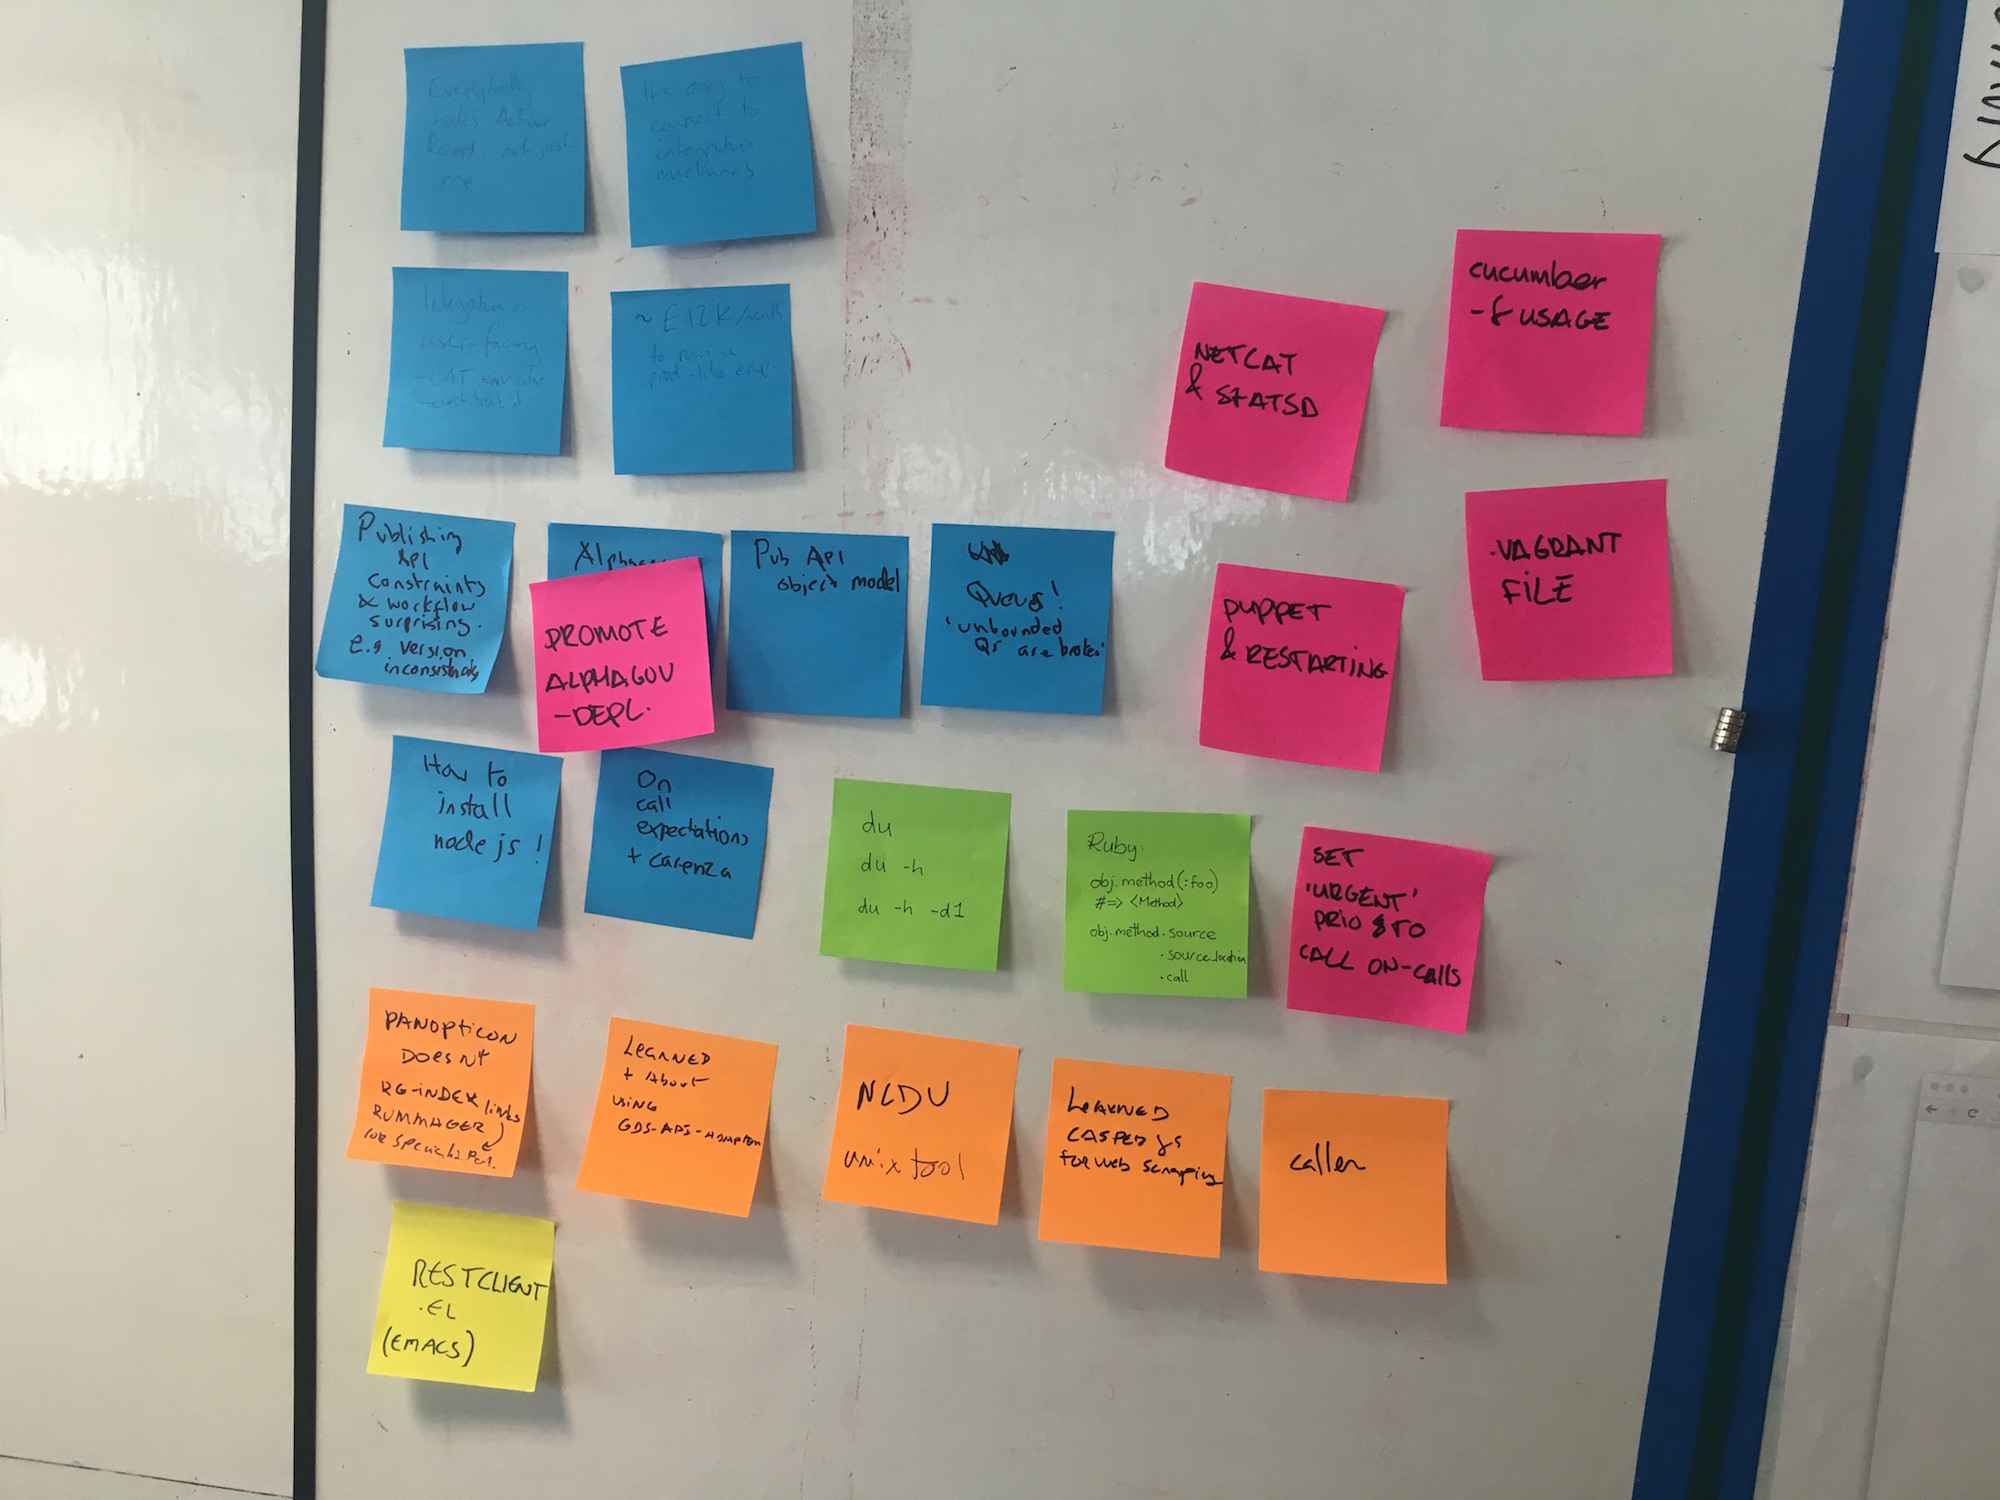 Everybody
hates Active
Record, not just
me
It's easy to
connect to
integration
machines
Integration is
user-facing
~ £12K/month
to run a
prod-like env
cucumber
-f USAGE
NETCAT
& STATSD
Publishing
API
constraints
& workflow
surprising.
e.g. version
Alpha
PROMOTE
ALPHAGOV
-DEPL.
Pub API
object model
Queues!
'unbounded
Qs are broken'
.VAGRANT
FILE
PUPPET
& RESTARTING
How to
install
node js !
On
call
expectations
+ carenza
du
du -h
du -h -d1
Ruby:
obj.method(:foo)
#=> <Method>
obj.method.source
.source_location
.call
SET
'URGENT'
PRIO TO
CALL ON-CALLS
PANOPTICON
DOESN'T
RE-INDEX links
RUMMAGER
for specialist
LEARNED
+ About
using
GDS-API-ADAPTERS
NCDU
unix tool
LEARNED
CASPER JS
for web scrapping
caller
RESTCLIENT
.EL
(EMACS)